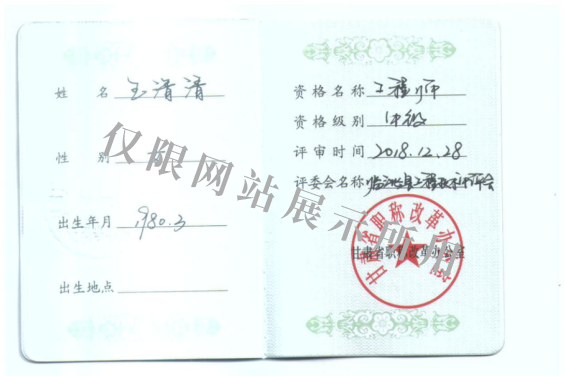 姓 名 王清清
性 别
出生年月 1980.3
出生地点
资格名称 工程师
资格级别 中级
评审时间 2018.12.28
评委会名称 临洮县工程技术评会
甘肃省职称改革办公室
甘肃省职称改革办公室
仅限网站展示所用